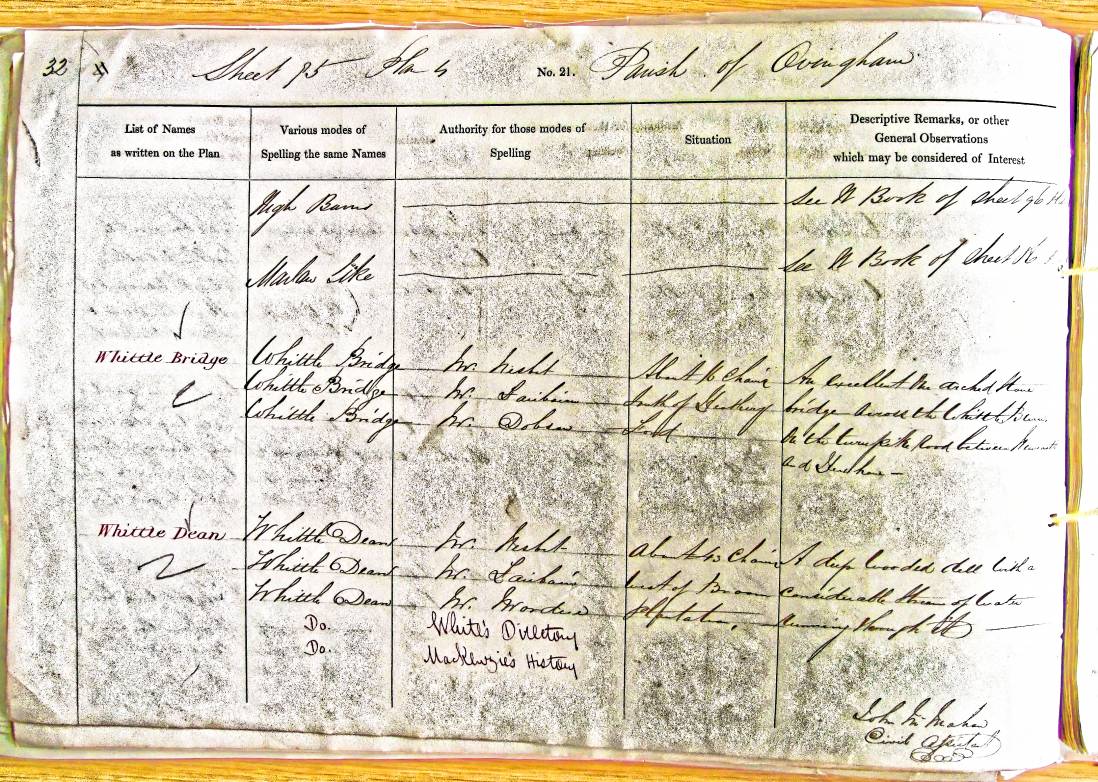 32
Sheet 95 Plan 4 No. 21. Parish of Ovingham
List of Names
as written on the Plan
Various modes of
Spelling the same Names
Authority for those modes of
Spelling
Situation
Descriptive Remarks, or other
General Observations
which may be considered of Interest
High Barns
See N Book of Sheet 96
Marlaw Sike
See N Book of Sheet
Whittle Bridge
Whittle Bridge
Whittle Bridge
Whittle Bridge
Mr. Nisbt
Mr. Fairbairn
Mr. Dobson
About 16 Chains
South of
An excellent One arched Stone
bridge across the Whittle Burn
On the turnpike road between
and
Whittle Dean
Whittle Dean
Whittle Dean
Whittle Dean
Do.
Do.
Mr. Nisbt
Mr. Fairbairn
Mr.
White's Directory
MacKenzie's History
About 45 Chains
west of Broom
plantation.
A deep wooded dell with a
considerable Stream of Water
running through it
John McMahon
Civil Assistant